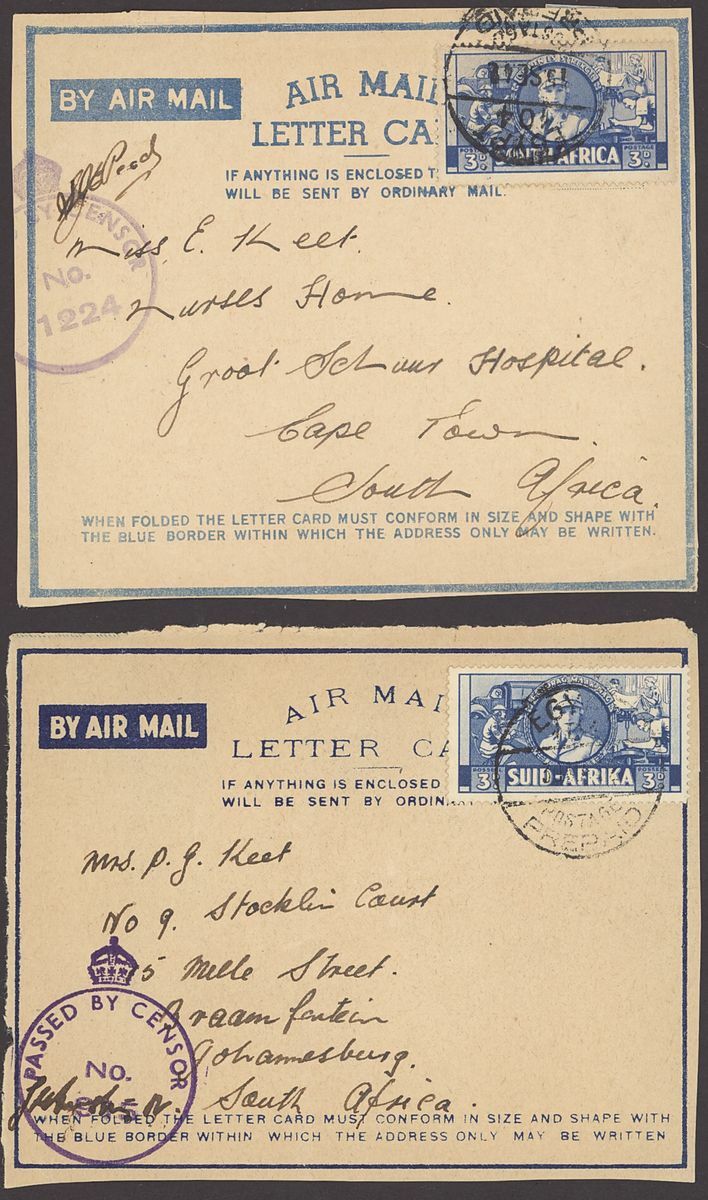 BY AIR MAIL
AIR MAIL
LETTER CA
IF ANYTHING IS ENCLOSED T
WILL BE SENT BY ORDINARY MAIL.
POSTAGE
3D. AFRICA 3D.
EGYPT
PREPAID
BY CENSOR
No.
1224
Miss E. Keet.
Nurses Home.
Groot Schuur Hospital.
Cape Town.
South Africa.
WHEN FOLDED THE LETTER CARD MUST CONFORM IN SIZE AND SHAPE WITH
THE BLUE BORDER WITHIN WHICH THE ADDRESS ONLY MAY BE WRITTEN.
BY AIR MAIL
AIR MAI
LETTER CA
IF ANYTHING IS ENCLOSED
WILL BE SENT BY ORDIN
3D. SUID-AFRIKA 3D.
EGY
POSTAGE
PREPAID
Mrs. P. G. Keet
No 9. Stocklin Court
5 Melle Street.
Braamfontein
Johannesburg.
South Africa.
PASSED BY CENSOR
No.
WHEN FOLDED THE LETTER CARD MUST CONFORM IN SIZE AND SHAPE WITH
THE BLUE BORDER WITHIN WHICH THE ADDRESS ONLY MAY BE WRITTEN